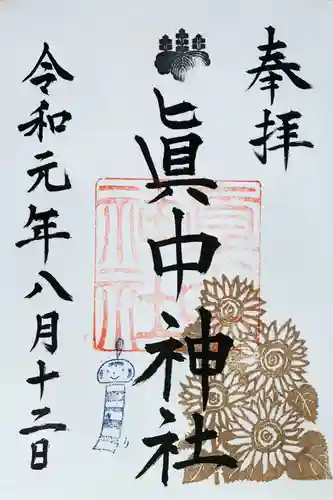 奉拝
眞中神社
令和元年八月十二日